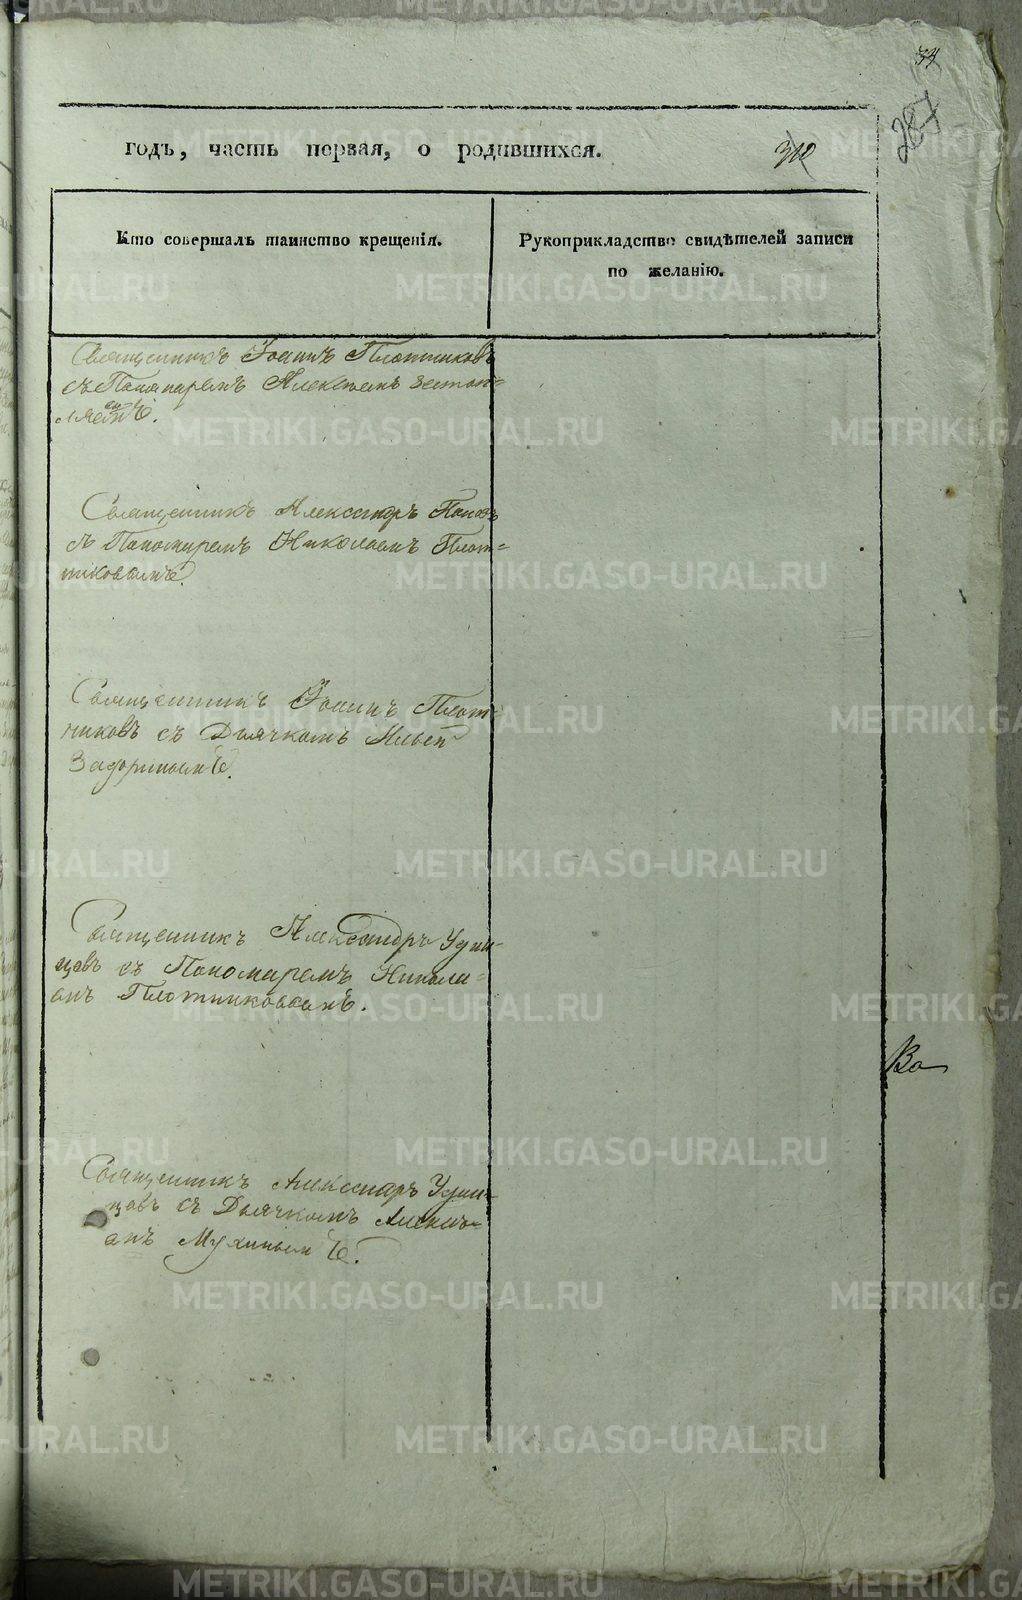 34
287
годъ, часть первая, о родившихся.
310
Кто совершалъ таинство крещенія.
Рукоприкладство свидѣтелей записи
по желанію.
Священникъ Іоаннъ Плотниковъ
съ Пономаремъ Алексѣемъ
Священникъ Александръ Поповъ
съ Пономаремъ Николаемъ Плот=
никовымъ.
Священникъ Іоаннъ Плот
никовъ съ Дьячкомъ Ильей
Задоринымъ.
Священникъ Александръ Удин-
цовъ съ Пономаремъ Никола=
емъ Плотниковымъ.
Во
Священникъ Александръ Удин-
цовъ съ Дьячкомъ Алексѣ=
емъ Мухинымъ.
METRIKI.GASO-URAL.RU